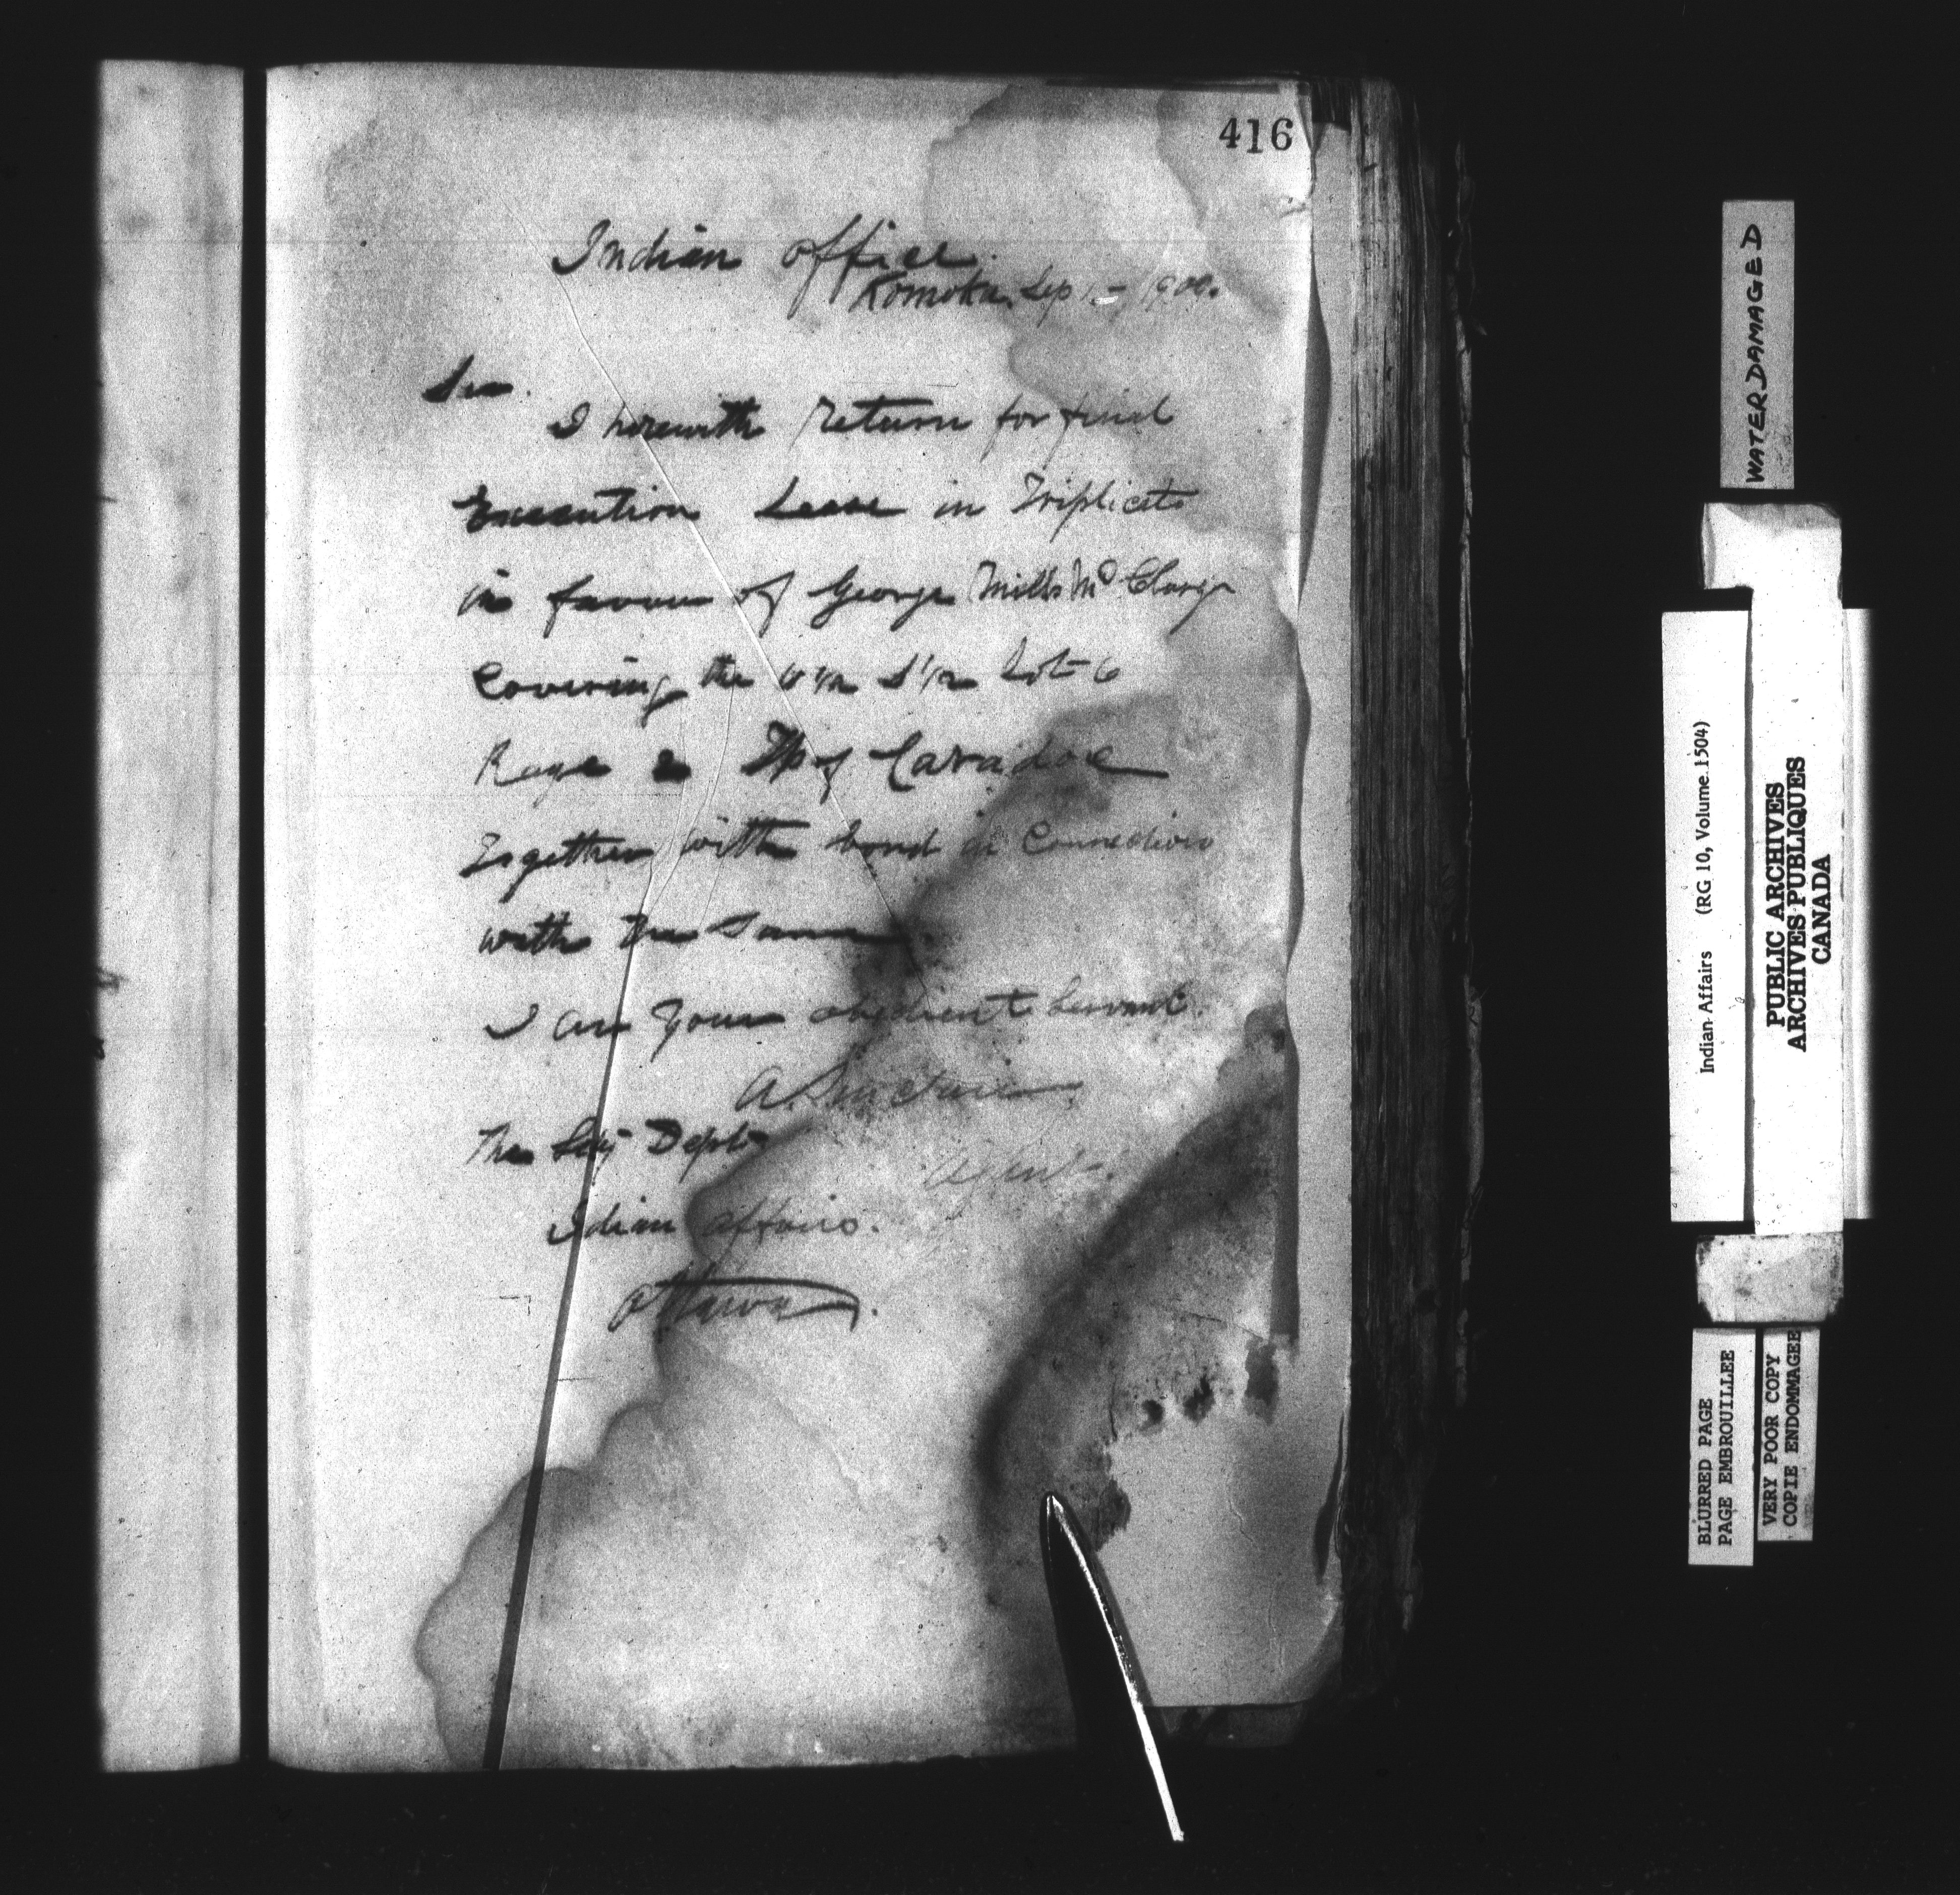 416
Indian Office.
Komoka Sep 1 - 1900.
Sir.
I herewith return for final
Execution Lease in Triplicate
in favour of George Mills
Covering the S 1/2 Lot 6
Range 2 Tp of Caradoc
Together with bond in Connection
with the Same
I am your obedient Servant.
A. Sinclair
Agent.
The Secy Dept
Idian Affairs.
Ottawa.
WATER DAMAGED
Indian Affairs (RG 10, Volume 1504)
PUBLIC ARCHIVES
ARCHIVES PUBLIQUES
CANADA
BLURRED PAGE
PAGE EMBROUILLEE
VERY POOR COPY
COPIE ENDOMMAGEE